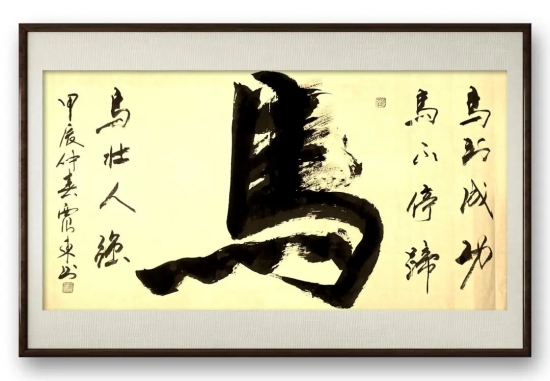 馬到成功
馬不停蹄
馬
馬壮人强
甲辰仲春震東书